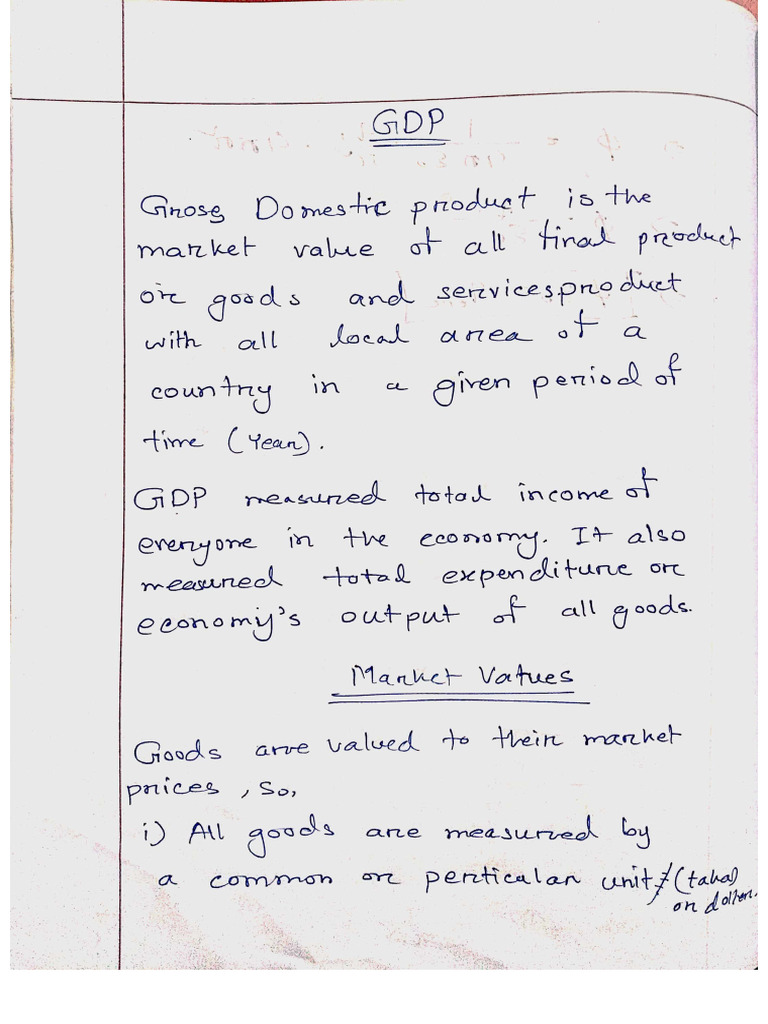 GDP
Gross Domestic product is the
market value of all final product
or goods and services product
with all local area of a
country in a given period of
time (Year).
GDP measured total income of
everyone in the economy. It also
measured total expenditure or
economy's output of all goods.
Market Values
Goods are valued to their market
prices, So,
i) All goods are measured by
a common or perticular unit (taka)
or doller.